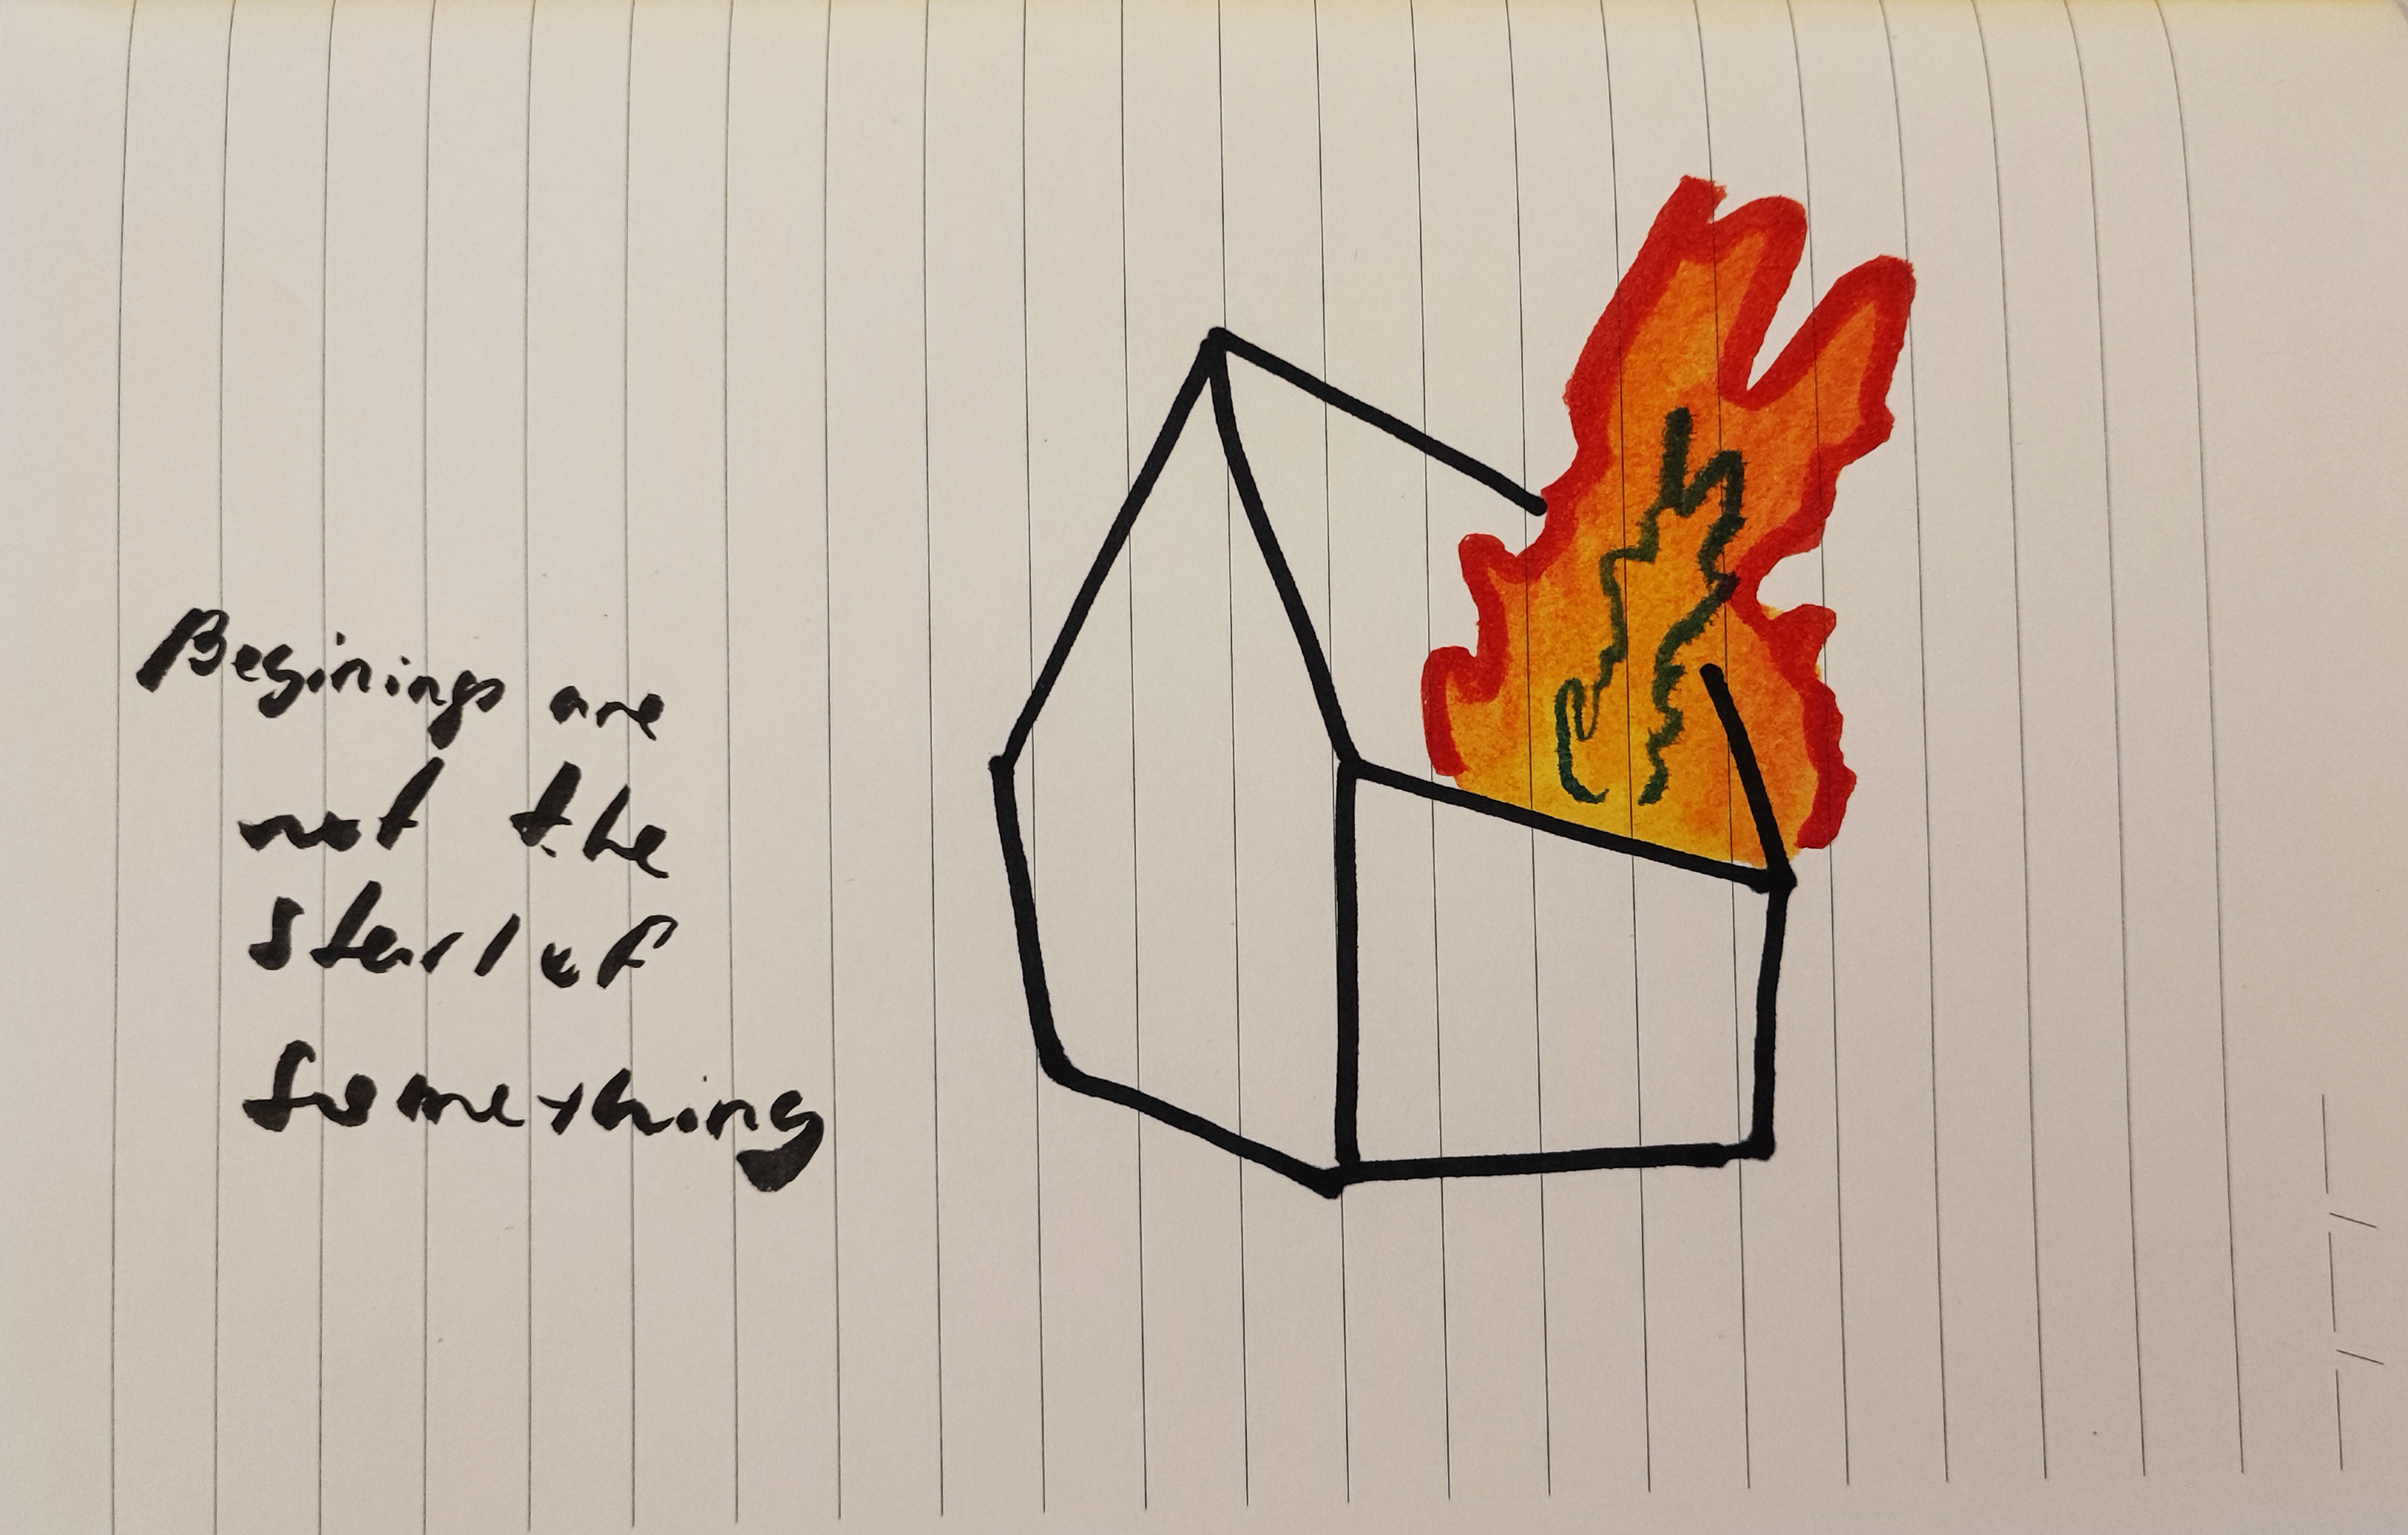 Beginings are
not the
start of
something